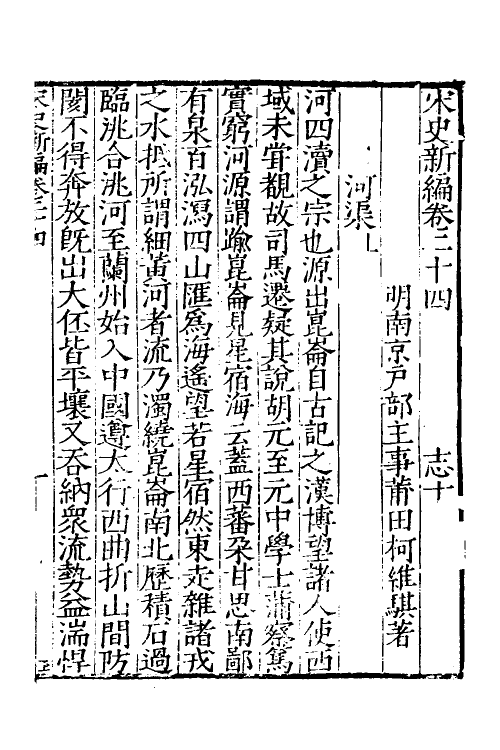 宋史新編卷三十四　志十
明南京戸部主事莆田柯維騏著
河渠上
河四瀆之宗也源出崑崙自古記之漢博望諸人使西
域未甞覩故司馬遷疑其說胡元至元中學士蒲察篤
實窮河源謂踰崑崙見星宿海云蓋西蕃朶甘思南鄙
有泉百泓瀉四山匯爲海遙望若星宿然東走雜諸戎
之水抵所謂細黃河者流乃濁繞崑崙南北歷積石過
臨洮合洮河至蘭州始入中國遵大行西曲折山間防
閡不得奔放旣出大伾皆平壤又吞納衆流勢益湍悍
宋史新編卷三十四